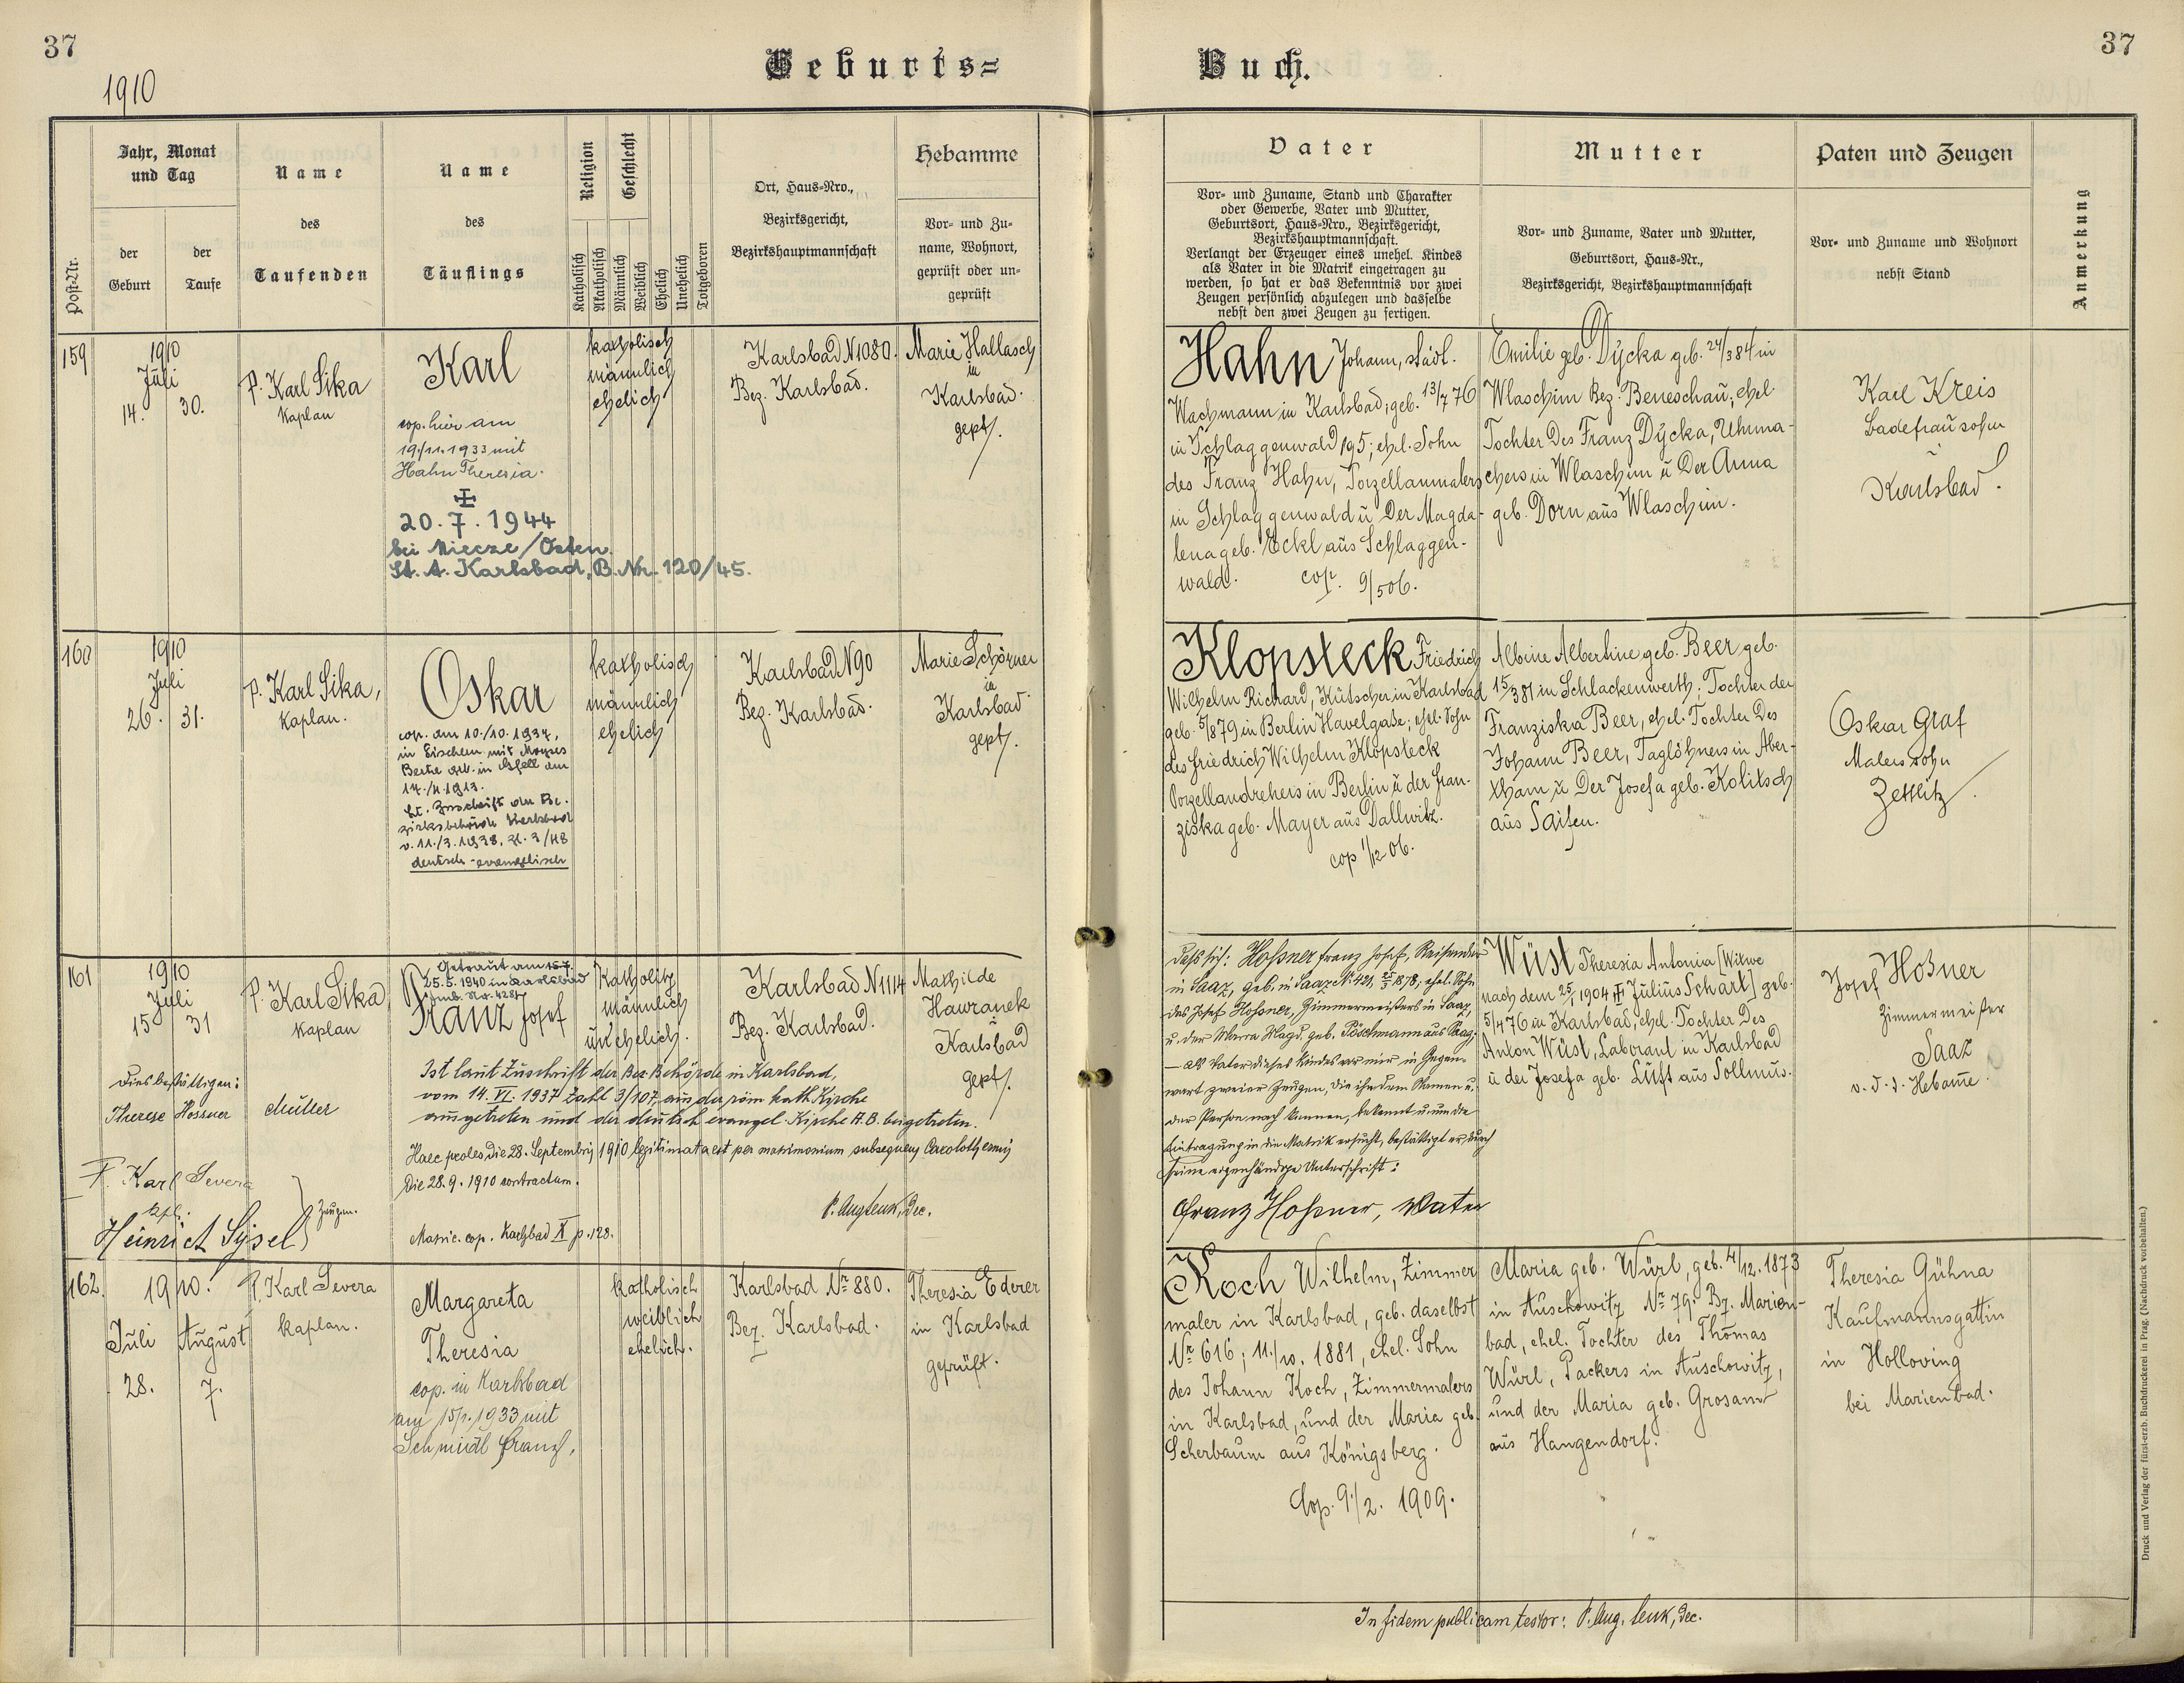 37
1910
Geburts=
Buch.
37
Post-Nr.
Jahr, Monat
und Tag
der
Geburt
der
Taufe
Name
des
Taufenden
Name
des
Täuflings
Religion
Katholisch
Akatholisch
Geschlecht
Männlich
Weiblich
Ehelich
Unehelich
Totgeboren
Ort, Haus-Nro.,
Bezirksgericht,
Bezirkshauptmannschaft
Hebamme
Vor- und Zu-
name, Wohnort,
geprüft oder un-
geprüft
Vater
Vor- und Zuname, Stand und Charakter
oder Gewerbe, Vater und Mutter,
Geburtsort, Haus-Nro., Bezirksgericht,
Bezirkshauptmannschaft.
Verlangt der Erzeuger eines unehel. Kindes
als Vater in die Matrik eingetragen zu
werden, so hat er das Bekenntnis vor zwei
Zeugen persönlich abzulegen und dasselbe
nebst den zwei Zeugen zu fertigen.
Mutter
Vor- und Zuname, Vater und Mutter,
Geburtsort, Haus-Nr.,
Bezirksgericht, Bezirkshauptmannschaft
Paten und Zeugen
Vor- und Zuname und Wohnort
nebst Stand
Anmerkung
159
1910
Juli
14. 30.
P. Karl Sika
Kaplan
Karl
cop. hier am
19./11.1933 mit
Hahn Theresia.
20.7.1944
bei Miecze/Osten
St. A. Karlsbad, B. Nr. 120/45.
katholisch
männlich
ehelich
Karlsbad N 1080.
Bez. Karlsbad.
Marie Hallasch
in
Karlsbad.
gept.
Hahn Johann, städt.
Wachmann in Karlsbad, geb. 13/7 76
in Schlaggenwald 195; ehel. Sohn
des Franz Hahn, Porzellanmalers
in Schlaggenwald u der Magda-
lena geb. Eckl aus Schlaggen-
wald. cop. 9/5 06.
Emilie geb. Dycka geb. 24/3 84 in
Wlaschim Bez. Beneschau, ehel.
Tochter des Franz Dycka, Uhrma-
chers in Wlaschim u der Anna
geb. Dorn aus Wlaschim.
Karl Kreis
Badefrausohn
Karlsbad.
160
1910
Juli
26. 31.
P. Karl Sika,
Kaplan.
Oskar
cop. am 10./10. 1937,
in Eischem mit Moyses
Berta geb. in
1913.
Lt. Zuschrift der Be-
zirksbehörde Karlsbad
v. 11./3.1938, Zl. 3/48
deutsch-evangelisch
katholisch
männlich
ehelich
Karlsbad N 90
Bez. Karlsbad.
Marie Schörner
in
Karlsbad.
gept.
Klopsteck Friedrich
Wilhelm Richard, Kutscher in Karlsbad
geb. 5/8 79 in Berlin Havelgasse; ehel. Sohn
des Friedrich Wilhelm Klopsteck
Porzellandrehers in Berlin u der Fran-
ziska geb. Mayer aus Dallwitz.
cop 1/12 06.
Albine Albertine geb. Beer geb.
15/3 81 in Schlackenwerth; Tochter der
Franziska Beer, ehel. Tochter des
Johann Beer, Taglöhners in Aber-
tham u der Josefa geb. Kolitsch
aus Saifen.
Oskar Graf
Malerssohn
Zettlitz.
161
1910
Juli
15 31
P. Karl Sika
Kaplan
Getraut am
25.5.1940 in Karlsbad
Franz Josef
Katholisch
männlich
unehelich.
Karlsbad N 1114
Bez. Karlsbad.
Mathilde
Hawranek
Karlsbad
gept.
Dies bestättigen:
Therese Hossner Mutter
F. Karl Severa
Kpl.
Heinrich Sysel
Zeugen.
Ist laut Zuschrift der Bez. Behörde in Karlsbad,
vom 14. VI. 1937 Zahl 3/107, aus der röm. kath. Kirche
ausgetreten und der deutsch evangel. Kirche A.B. beigetreten.
Haec proles die 28. Septembris 1910 legitimata est per matrimonium subsequens Carolothermis
die 28.9.1910 contractum.
P. Aug. Lenk, Dec.
Matric. cop. Karlsbad X p. 128.
Hossner Franz Josef, Reisender
in Saaz, geb. in Saaz No 421, 1878, ehel. Sohn
des Josef Hossner, Zimmermeisters in Saaz,
u. der Maria Magd. geb. Pöschmann aus Prag,
— als Vater dieses Kindes vor mir in Gegen-
wart zweier Zeugen, die ihn dem Namen u.
der Person nach kennen, bekennt u. um die
Eintragung in die Matrik ersucht, bestättigt er durch
seine eigenhändige Unterschrift:
Franz Hossner, Vater
Wüst Theresia Antonia [Witwe
nach dem 25/1 1904 Julius Schart] geb.
5/4 76 in Karlsbad, ehel. Tochter des
Anton Wüst, Laborant in Karlsbad
u der Josefa geb. Luft aus Sollmus.
Josef Hoßner
Zimmermeister
Saaz
v. d. d. Hebamme.
162.
1910.
Juli August
28. 7.
P. Karl Severa
Kaplan.
Margareta
Theresia
cop. in Karlsbad
am 15/1.1933 mit
Schmidl Franz,
katholisch
weiblich
ehelich.
Karlsbad Nr 880.
Bez. Karlsbad.
Theresia Ederer
in Karlsbad
geprüft.
Koch Wilhelm, Zimmer
maler in Karlsbad, geb. daselbst
Nr 616; 11./10. 1881, ehel. Sohn
des Johann Koch, Zimmermalers
in Karlsbad, und der Maria geb.
Scherbaum aus Königsberg.
Cop. 9./2. 1909.
Maria geb. Würl, geb. 4/12. 1873
in Auschowitz Nr 79. Bz. Marien-
bad, ehel. Tochter des Thomas
Würl, Packers in Auschowitz,
und der Maria geb. Grosam
aus Hangendorf.
Theresia Gühna
Kaufmannsgattin
in Holloving
bei Marienbad.
In fidem publicam testor: P. Aug. Lenk, Dec.
Druck und Verlag der fürst-erzb. Buchdruckerei in Prag. (Nachdruck vorbehalten.)